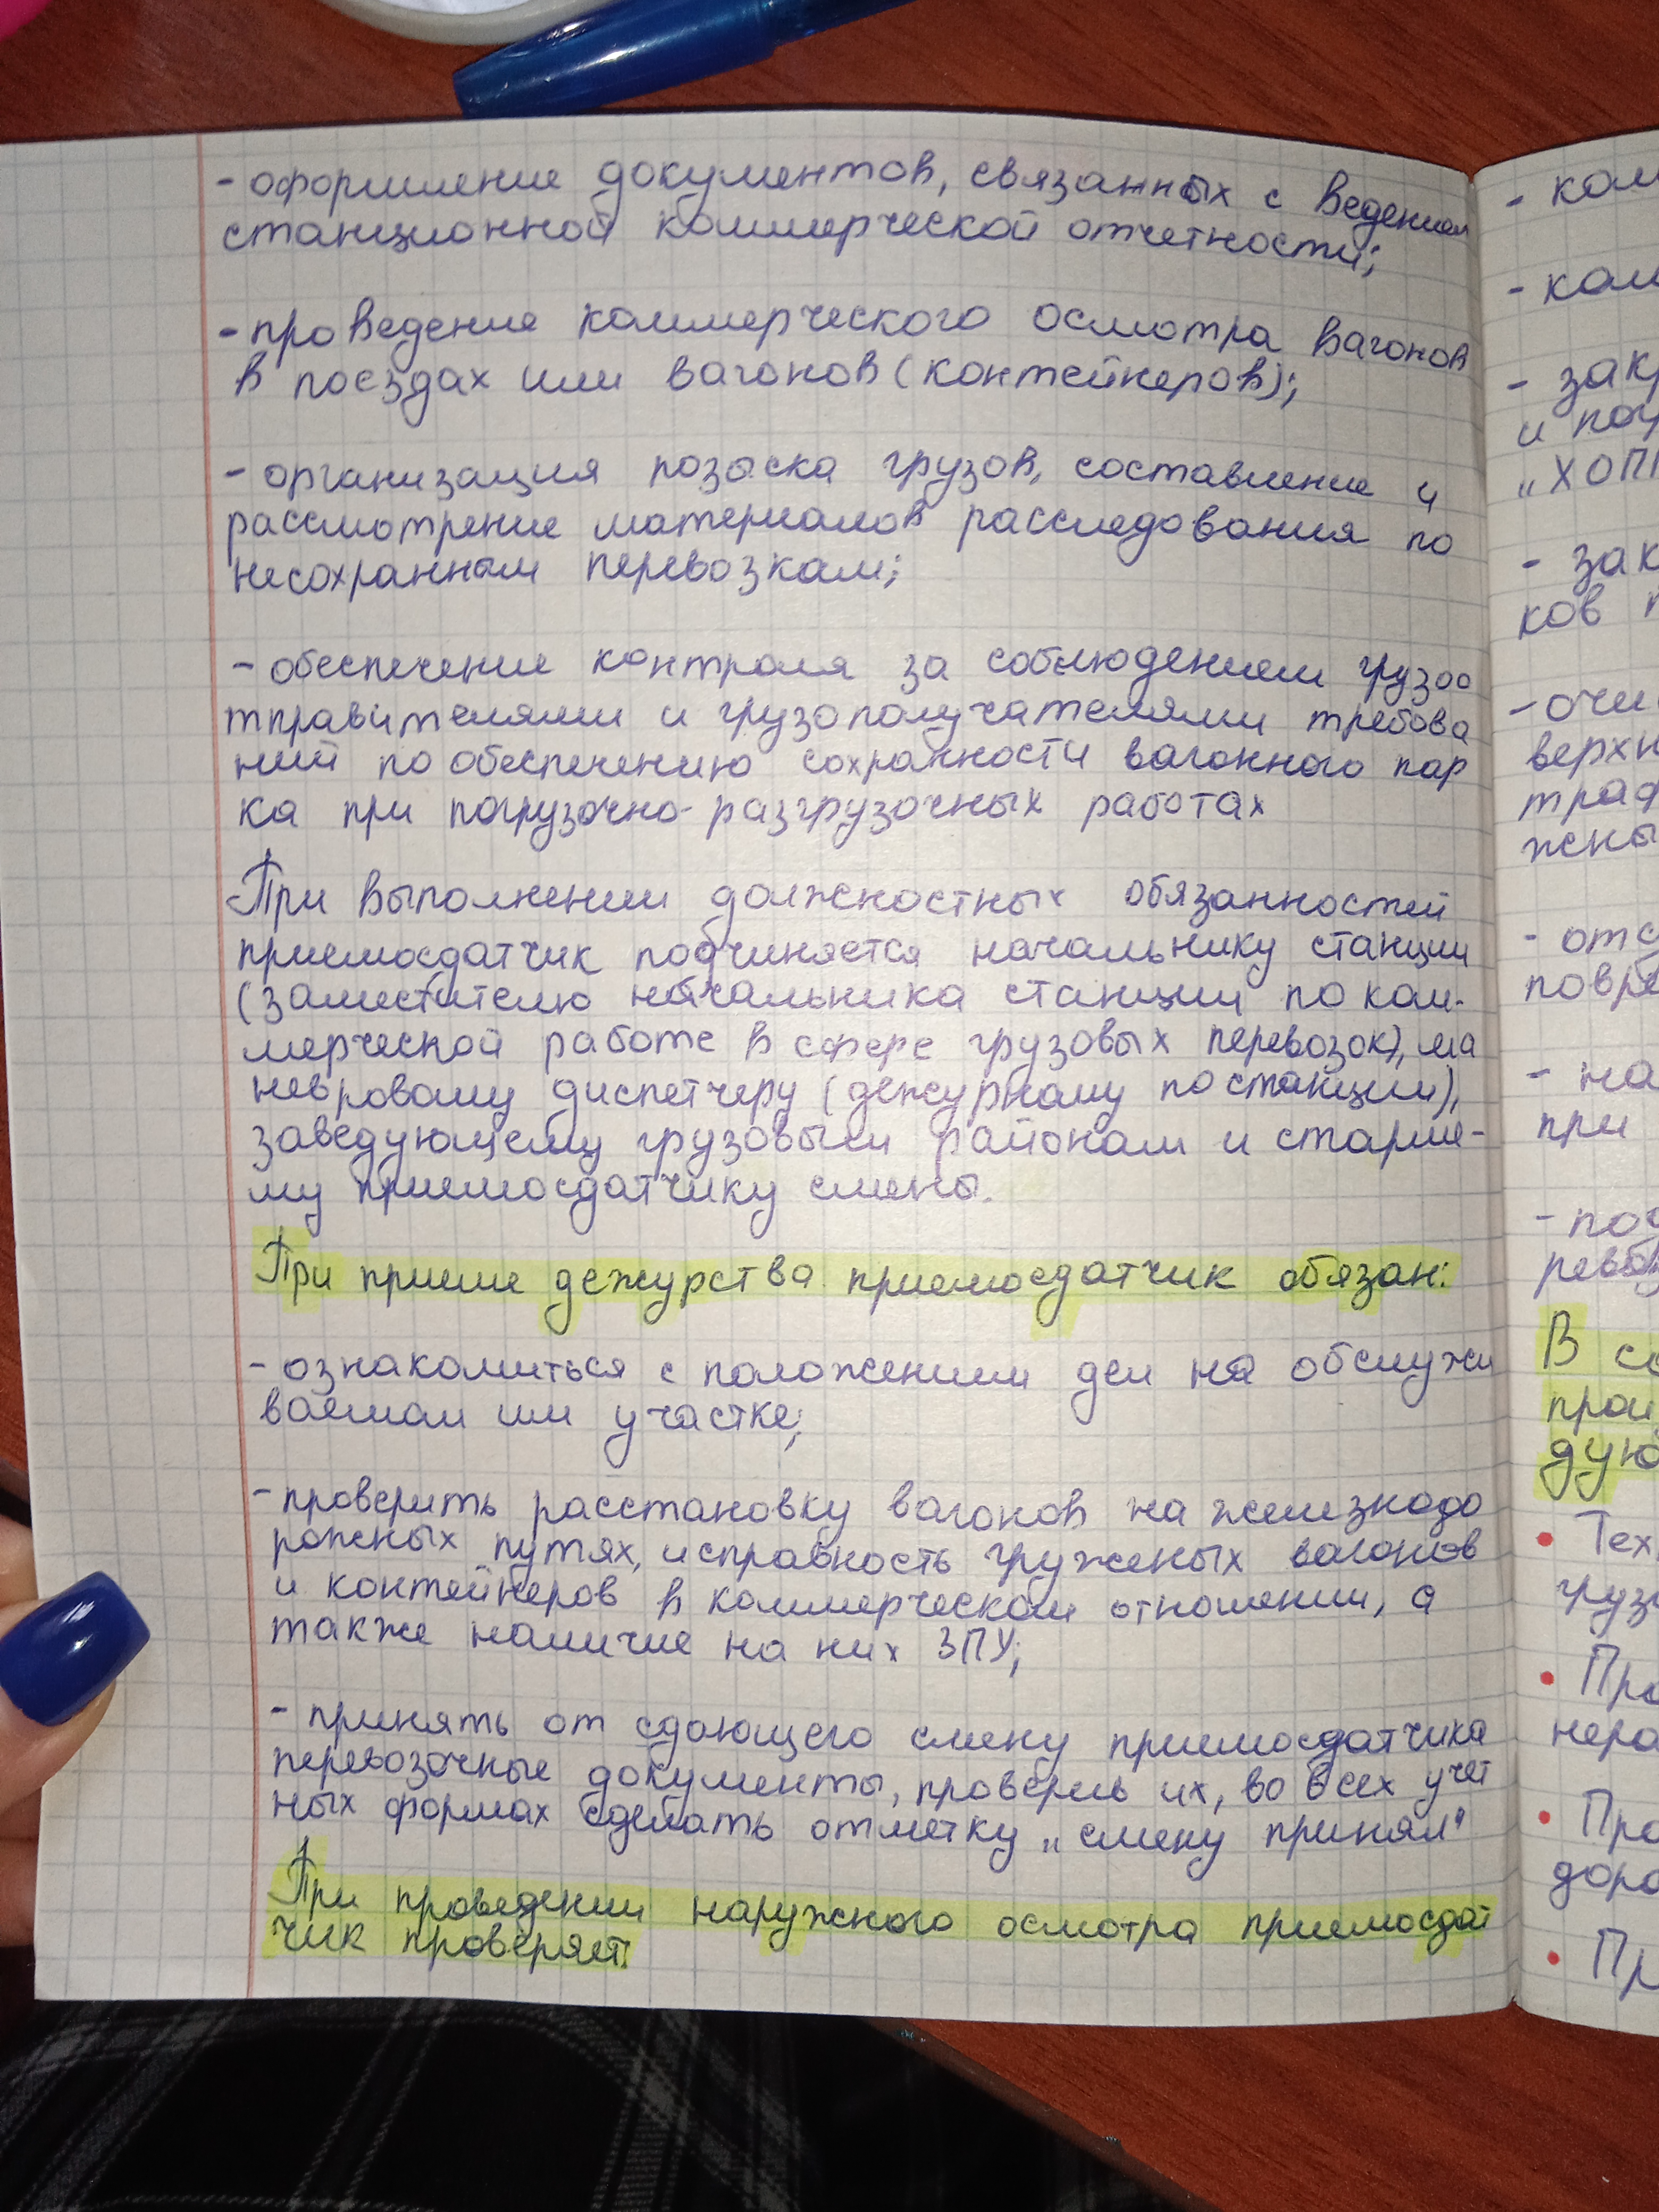 - оформление документов, связанных с ведением
станционной коммерческой отчетности;
- проведение коммерческого осмотра вагонов
в поездах или вагонов (контейнеров);
- организация розыска грузов, составление и
рассмотрение материалов расследования по
несохранным перевозкам;
- обеспечение контроля за соблюдением грузоо
тправителями и грузополучателями требова
ний по обеспечению сохранности вагонного пар
ка при погрузочно-разгрузочных работах
-При выполнении должностных обязанностей
приемосдатчик подчиняется начальнику станции
(заместителю начальника станции по ком-
мерческой работе в сфере грузовых перевозок), ма
невровому диспетчеру (дежурному по станции),
заведующему грузовым районом и старше-
му приемосдатчику смены.
При приеме дежурства приемосдатчик обязан:
- ознакомиться с положением дел на обслужи
ваемом им участке;
- проверить расстановку вагонов на железнодо
рожных путях, исправность груженых вагонов
и контейнеров в коммерческом отношении, а
также наличие на них ЗПУ;
- принять от сдающего смену приемосдатчика
перевозочные документы, проверив их, во всех учет
ных формах сделать отметку „смену принял"
При проведении наружного осмотра приемосдат
чик проверяет:
- ком
- ком
- закр
и пог
„ХОПП
- зак
ков п
- очи
верхн
траф
жены
- отс
повре
- на
при
- под
В со
прои
дую
• Тех
грузо
• Про
нера
• Про
доро
• Пр